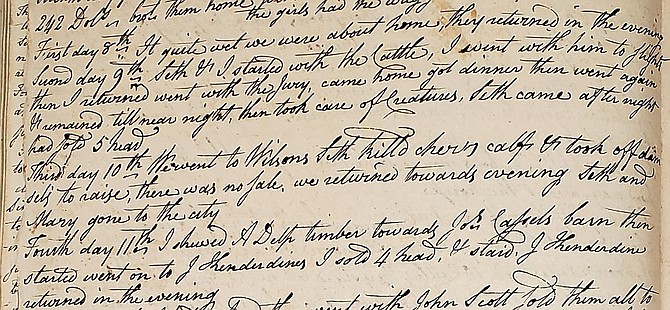 242 Dolls
the girls had the
First day 8th It quite wet we were about home, they returned in the evening
Second day 9th Seth & I started with the Cattle, I went with him to
then I returned went with the Jury, came home got dinner then went again
& remained till near night, then took care of Creatures, Seth came after night
had sold 5 head
Third day 10th We went to Wilsons Seth killd chers calf & took off dam
sels to raise, there was no sale, we returned towards evening Seth and
Mary gone to the city
Fourth day 11th I shewed A Delp timber towards Jos Cassels barn then
started went on to J Henderdines I sold 4 head, & staid, J Henderdine
returned in the evening
went with John Scott sold them all to